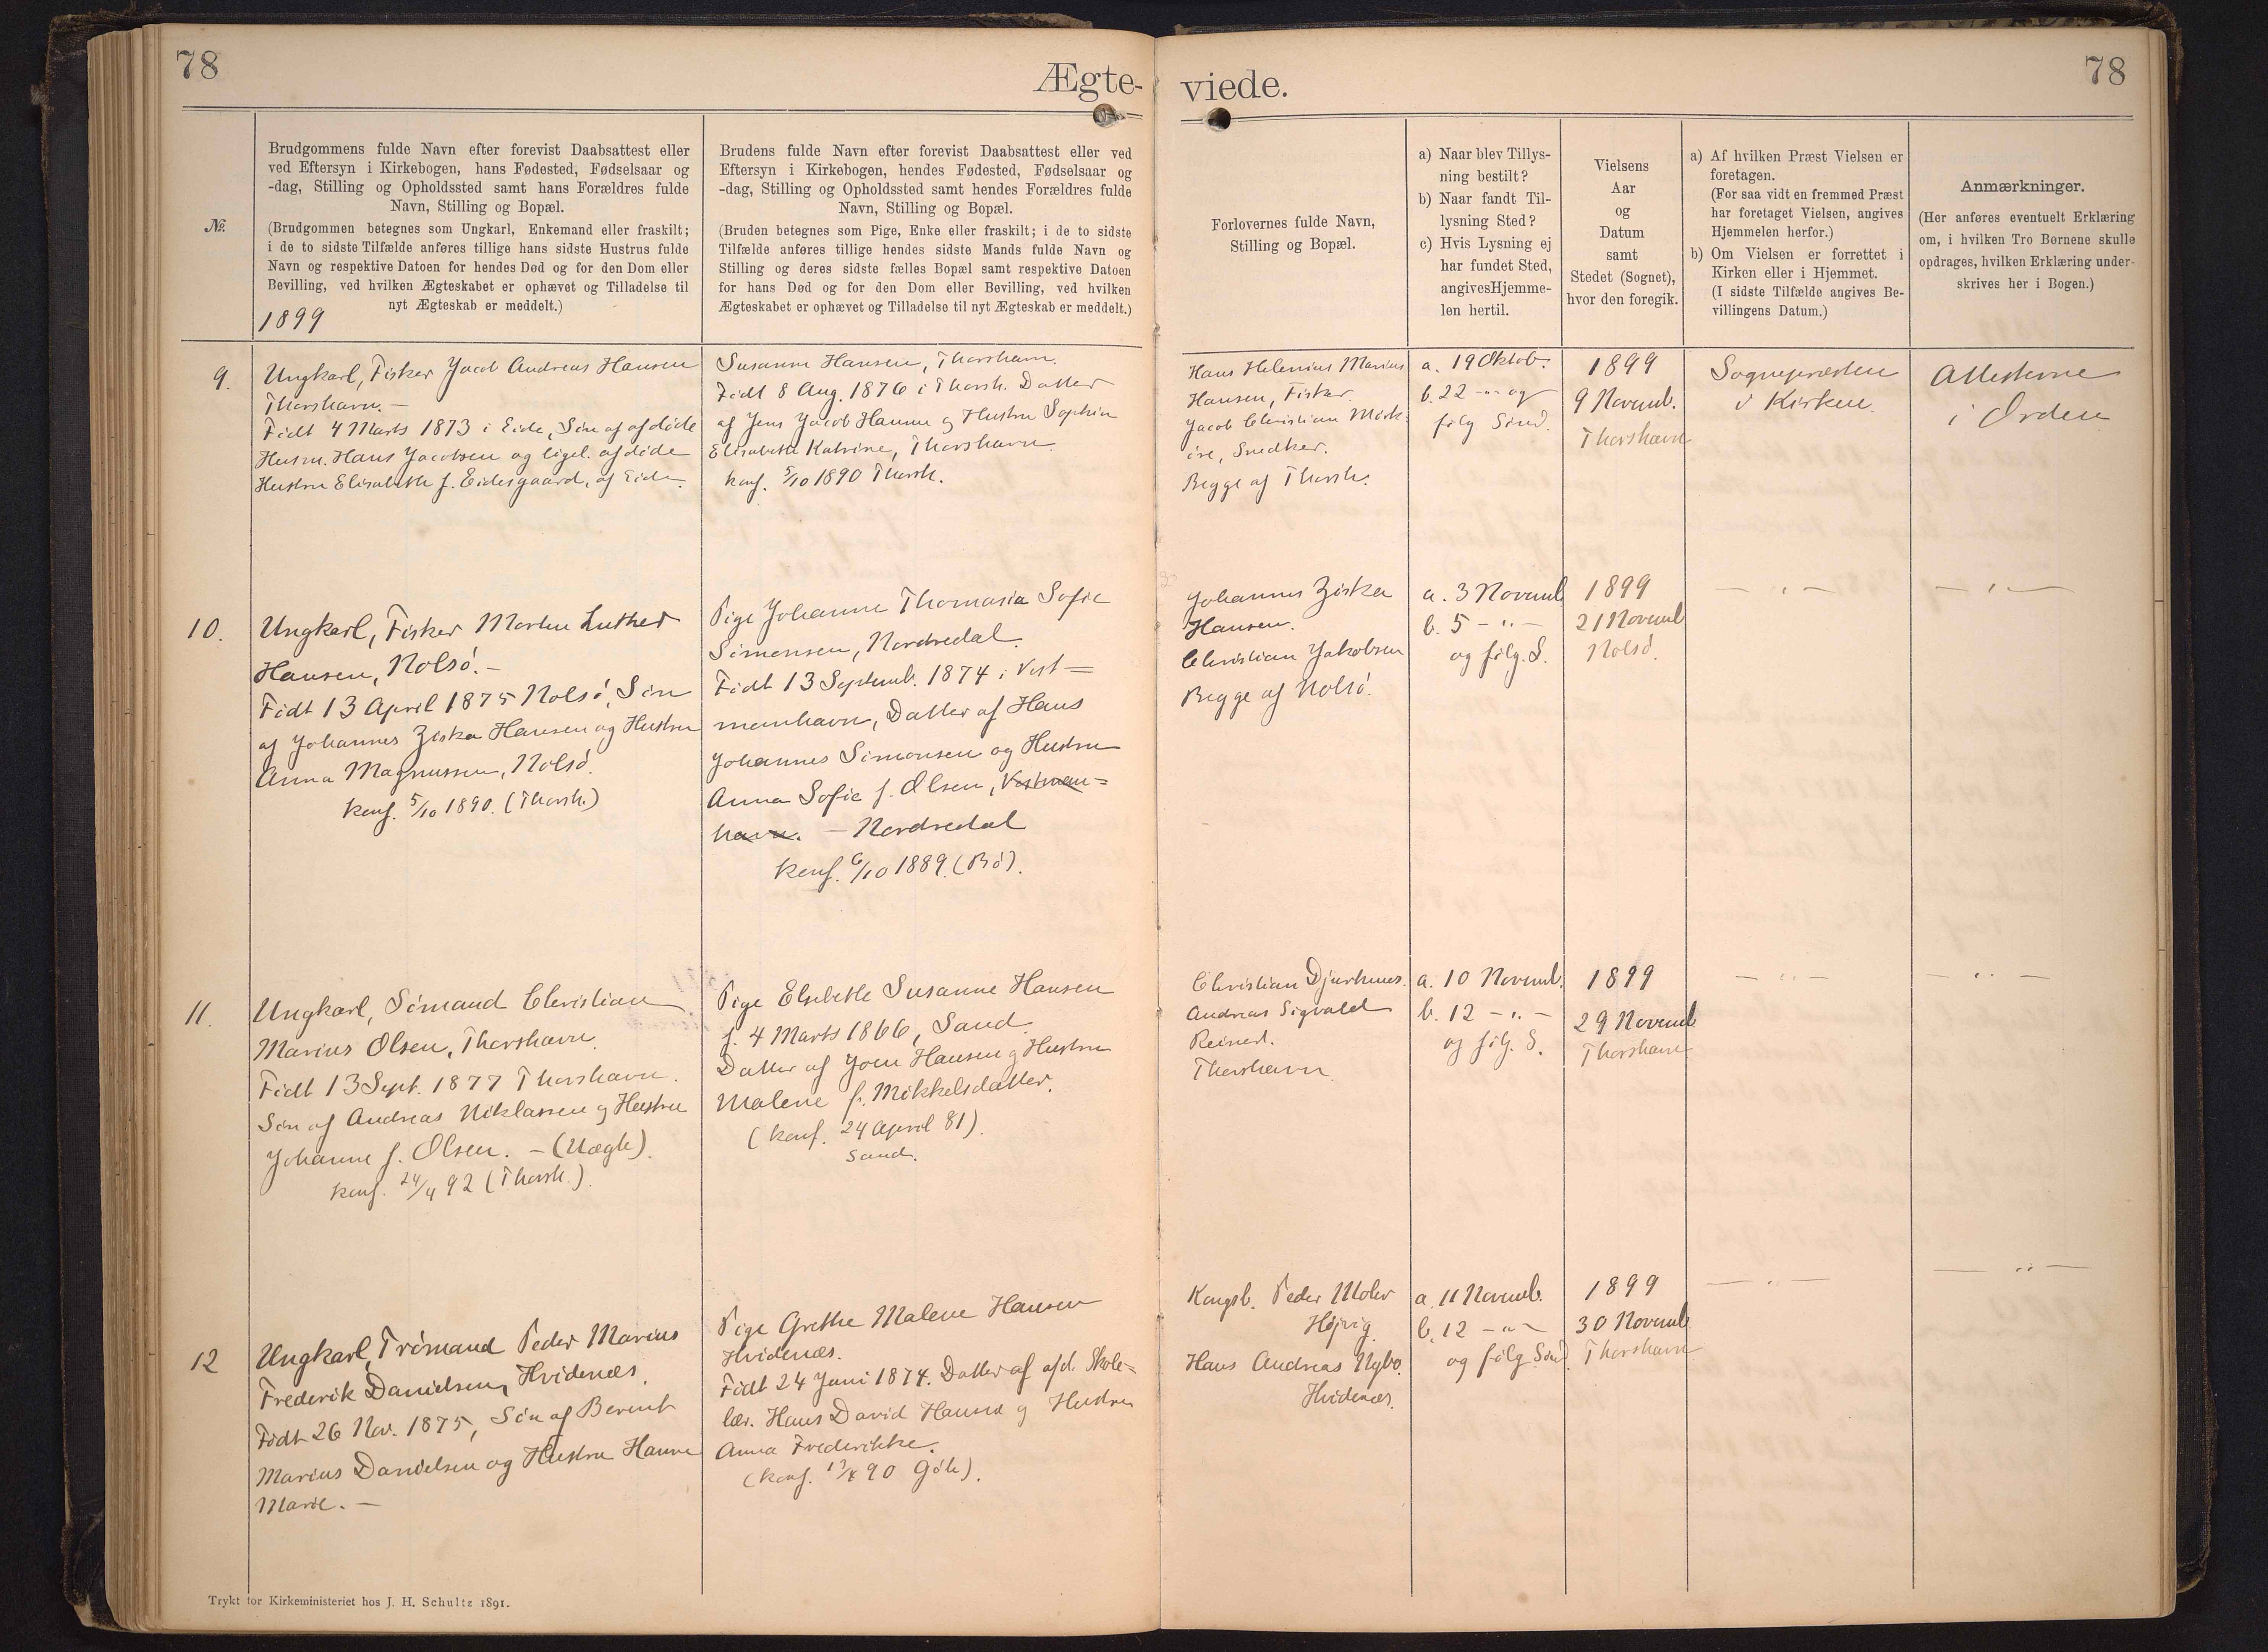 78
Ægte-
viede.
78
№.
Brudgommens fulde Navn efter forevist Daabsattest eller
ved Eftersyn i Kirkebogen, hans Fødested, Fødselsaar og
-dag, Stilling og Opholdssted samt hans Forældres fulde
Navn, Stilling og Bopæl.
(Brudgommen betegnes som Ungkarl, Enkemand eller fraskilt;
i de to sidste Tilfælde anføres tillige hans sidste Hustrus fulde
Navn og respektive Datoen for hendes Død og for den Dom eller
Bevilling, ved hvilken Ægteskabet er ophævet og Tilladelse til
nyt Ægteskab er meddelt.)
1899
Brudens fulde Navn efter forevist Daabsattest eller ved
Eftersyn i Kirkebogen, hendes Fødested, Fødselsaar og
-dag, Stilling og Opholdssted samt hendes Forældres fulde
Navn, Stilling og Bopæl.
(Bruden betegnes som Pige, Enke eller fraskilt; i de to sidste
Tilfælde anføres tillige hendes sidste Mands fulde Navn og
Stilling og deres sidste fælles Bopæl samt respektive Datoen
for hans Død og for den Dom eller Bevilling, ved hvilken
Ægteskabet er ophævet og Tilladelse til nyt Ægteskab er meddelt.)
Forlovernes fulde Navn,
Stilling og Bopæl.
a) Naar blev Tillys-
ning bestilt?
b) Naar fandt Til-
lysning Sted?
c) Hvis Lysning ej
har fundet Sted,
angivesHjemme-
len hertil.
Vielsens
Aar
og
Datum
samt
Stedet (Sognet),
hvor den foregik.
a) Af hvilken Præst Vielsen er
foretagen.
(For saa vidt en fremmed Præst
har foretaget Vielsen, angives
Hjemmelen herfor.)
b) Om Vielsen er forrettet i
Kirken eller i Hjemmet.
(I sidste Tilfælde angives Be-
villingens Datum.)
Anmærkninger.
(Her anføres eventuelt Erklæring
om, i hvilken Tro Børnene skulle
opdrages, hvilken Erklæring under-
skrives her i Bogen.)
9.
Ungkarl, Fisker Jacob Andreas Hansen
Thorshavn. —
Født 4 Marts 1873 i Eide, Søn af afdøde
Husm. Hans Jacobsen og ligel. afdøde
Hustru Elisabeth f. Eidesgaard, af Eide.
Susanne Hansen, Thorshavn.
Født 8 Aug. 1876 i Thorsh. Datter
af Jens Jacob Hansen og Hustru Sophia
Elisabeth Katrine, Thorshavn.
konf. 5/10 1890 Thorsh.
Hans Helenius Marius
Hansen, Fisker.
Jacob Christian Mørk-
øre, Snedker.
Begge af Thorsh.
a. 19 Oktob.
b. 22 -"- og
følg Sønd.
1899
9 Novemb.
Thorshavn
Sognepræsten
i Kirken.
Attesterne
i Orden
10.
Ungkarl, Fisker Morten Luther
Hansen, Nolsø. —
Født 13 April 1875 Nolsø, Søn
af Johannes Ziska Hansen og Hustru
Anna Magnussen, Nolsø.
konf. 5/10 1890. (Thorsh.)
Pige Johanne Thomasia Sofie
Simonsen, Nordredal.
Født 13 Septemb. 1874 i Vest=
manhavn, Datter af Hans
Johannes Simonsen og Hustru
Anna Sofie f. Olsen, Vestman=
havn. — Nordredal
konf. 6/10 1889. (Bø).
Johannes Ziska
Hansen.
Christian Jakobsen
Begge af Nolsø.
a. 3 Novemb
b. 5 -"-
og følg. S.
1899
21 Novemb
Nolsø.
— " —
— " —
11.
Ungkarl, Sømand Christian
Marius Olsen, Thorshavn.
Født 13 Sept. 1877 Thorshavn.
Søn af Andreas Niklassen og Hustru
Johanne f. Olsen. — (Uægte).
konf. 24/4 92 (Thorsh.).
Pige Elsebeth Susanne Hansen
f. 4 Marts 1866, Sand.
Datter af Joen Hansen og Hustru
Malene f. Mikkelsdatter.
(konf. 24 April 81).
Sand.
Christian Djurhuus.
Andreas Sigvald
Reinert.
Thorshavn.
a. 10 Novemb.
b. 12 -"-
og følg. S.
1899
29 Novemb
Thorshavn
— " —
— " —
12
Ungkarl, Trømand Peder Marius
Frederik Danielsen, Hvidenæs.
Født 26 Nov. 1875, Søn af Berent
Marius Danielsen og Hustru Hanne
Marie. —
Pige Grethe Malene Hansen
Hvidenæs.
Født 24 Juni 1874. Datter af afd. Skole=
lær. Hans David Hansen og Hustru
Anna Frederikke.
(konf. 90 Göte).
Kongsb. Peder Mohr
Højvig.
Hans Andreas Nybo.
Hvidenæs.
a. 11 Novemb.
b. 12 -"-
og følg Sønd.
1899
30 Novemb.
Thorshavn
— " —
— " —
Trykt for Kirkeministeriet hos J. H. Schultz 1891.